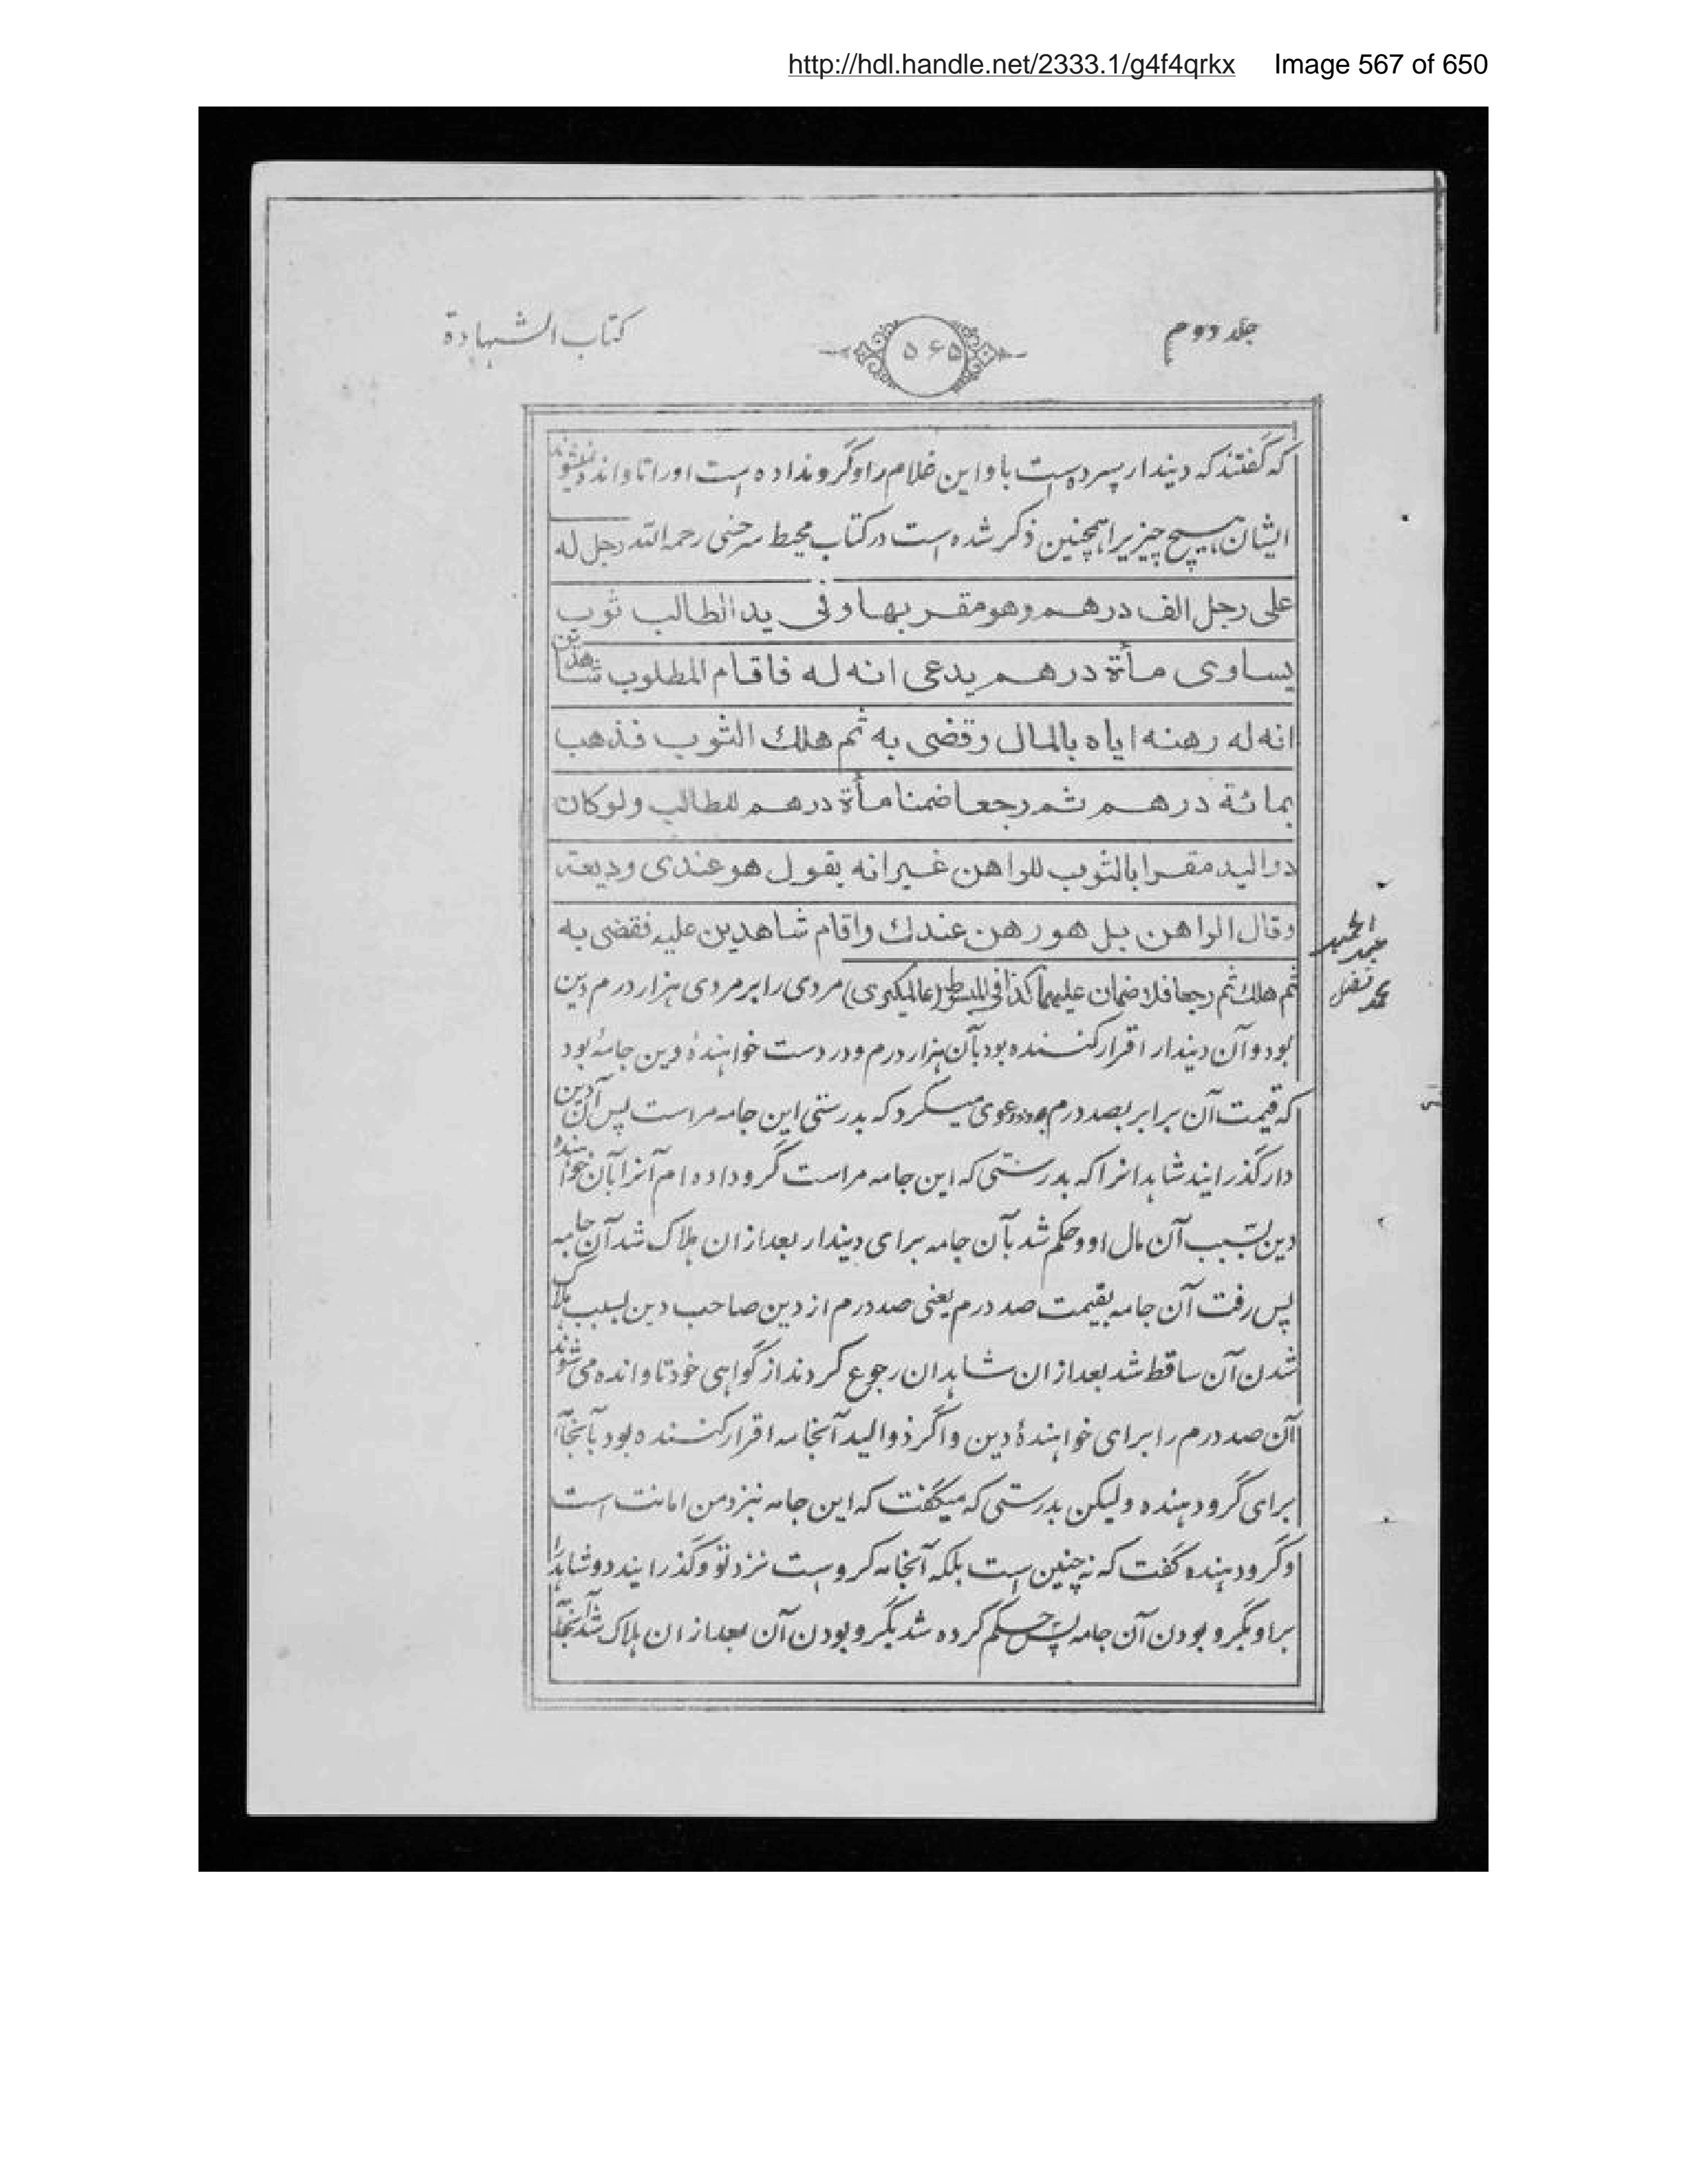 http://hdl.handle.net/2333.1/g4f4qrkx Image 567 of 650
جلد دوم
۵۶۵
کتاب الشهادة
که گفتند که دیندار سپرده است باو این غلام را و گرو نداده است او را تاوانده نمیشوند
ایشان هیچ چیزیرا همچنین ذکر شده است در کتاب محیط سرخسی رحمه الله رجل له
علی رجل الف درهم وهو مقر بها وفی ید الطالب ثوب
یساوی مأة درهم یدعی انه له فاقام المطلوب شاهدین
انه له رهنه ایاه بالمال وقضی به ثم هلك الثوب فذهب
بمائة درهم ثم رجعا ضمنا مأة درهم للطالب ولو کان
ذوالید مقرا بالثوب للراهن غیر انه یقول هو عندی ودیعة
وقال الراهن بل هو رهن عندك واقام شاهدین علیه فقضی به
ثم هلك ثم رجعا فلا ضمان علیهما کذا فی المبسوط (عالمگیری) مردی را بر مردی هزار درم دین
بود و آن دیندار اقرار کننده بود بآن هزار درم و در دست خواهندۀ دین جامۀ بود
که قیمت آن برابر بصد درم بود و دعوی میکرد که بدرستی این جامه مراست پس آن دین
دار گذرانید شاهدانرا که بدرستی که این جامه مراست گرو داده ام آنرا بآن خواهنده
دین بسبب آن مال او و حکم شد بآن جامه برای دیندار بعد از ان هلاک شد آن جامه
پس رفت آن جامه بقیمت صد درم یعنی صد درم از دین صاحب دین بسبب هلاک
شدن آن ساقط شد بعد از ان شاهدان رجوع کردند از گواهی خود تاوانده می شوند
آن صد درم را برای خواهندۀ دین و اگر ذوالید آنجامه اقرار کننده بود بآنجامه
برای گرو دهنده ولیکن بدرستی که میگفت که این جامه نزد من امانت است
و گرو دهنده گفت که نه چنین است بلکه آنجامه گرو است نزد تو و گذرانید دو شاهد را
براو بگرو بودن آن جامه پس حکم کرده شد بگرو بودن آن بعد از ان هلاک شد آنجامه
عبد الحمید
محمد فضل